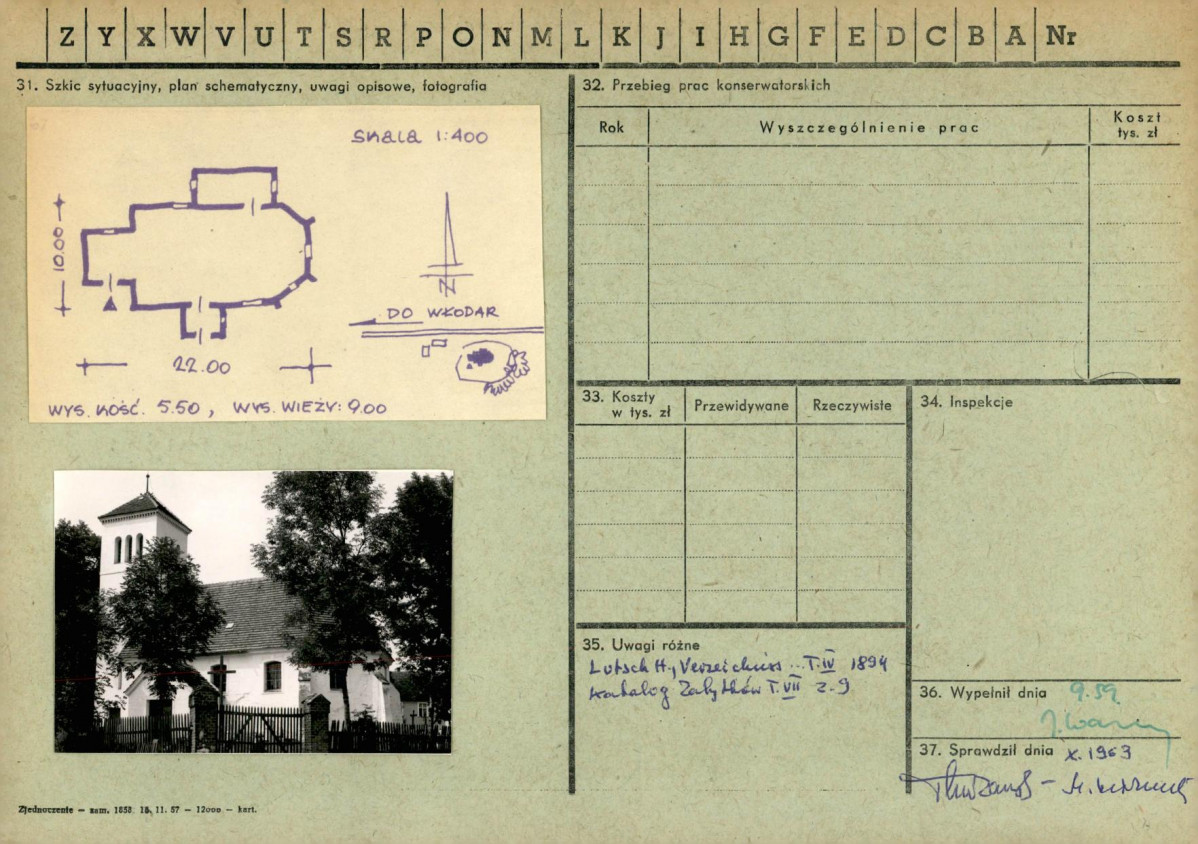 Z Y X W V U T S R P O N M L K J I H G F E D C B A Nr
31. Szkic sytuacyjny, plan schematyczny, uwagi opisowe, fotografia
Skala 1:400
10.00
N
DO WŁODAR
22.00
WYS. KOŚĆ. 5.50, WYS. WIEŻY: 9.00
Zjednoczenie — zam. 1858. 18. 11. 57 — 12000 — kart.
32. Przebieg prac konserwatorskich
Rok
Wyszczególnienie prac
Koszt
tys. zł
33. Koszty
w tys. zł
Przewidywane
Rzeczywiste
34. Inspekcje
35. Uwagi różne
Lutsch H., Verzeichnis ... T. IV 1894
Katalog Zabytków T. VII z. 9
36. Wypełnił dnia 9.59.
37. Sprawdził dnia X. 1963